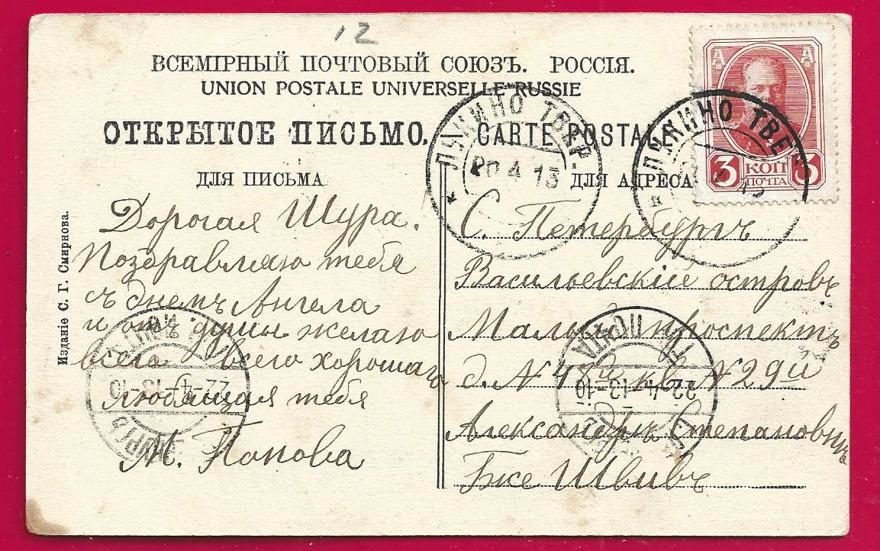 12
ВСЕМІРНЫЙ ПОЧТОВЫЙ СОЮЗЪ. РОССІЯ.
UNION POSTALE UNIVERSELLE RUSSIE
ОТКРЫТОЕ ПИСЬМО. CARTE POSTALE
ДЛЯ ПИСЬМА
ДЛЯ АДРЕСА
3 КОП 3
ПОЧТА
ЛУКИНО ТВЕР.
20 4 13
ЛУКИНО ТВЕ
13
Дорогая Шура.
Поздравляю тебя
съ днемъ Ангела
и отъ души желаю
всего всего хорошаго
любящая тебя
М. Попова
С. Петербургъ
Васильевскій островъ
Малый проспектъ
д. № кв. № 29й
Александръ Степановнѣ
22-4-13-10
22-4-13-10
Изданіе С. Г. Смирнова.